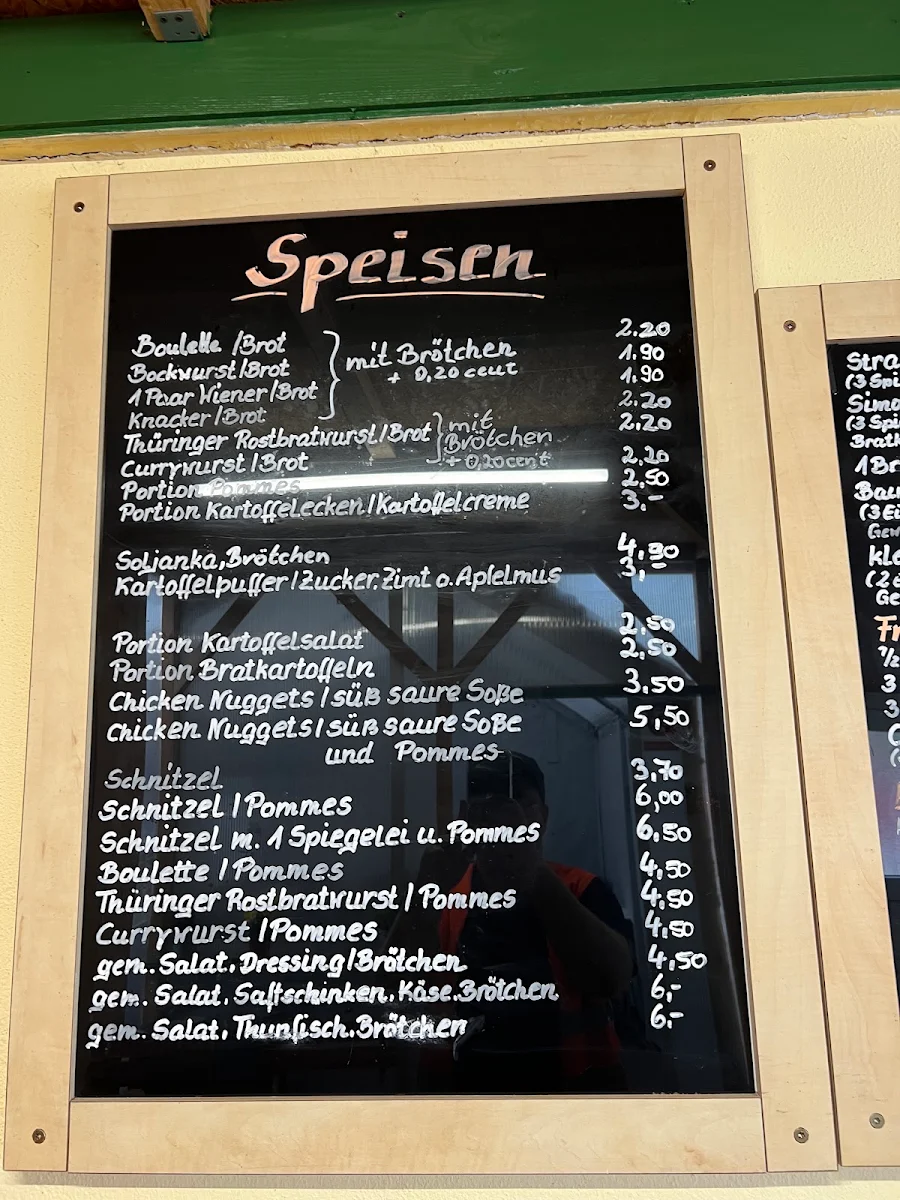 Speisen
Boulette /Brot 2.20
Bockwurst/Brot 1.90
1 Paar Wiener/Brot 1.90
Knacker/Brot 2.20
mit Brötchen
+ 0,20 cent
Thüringer Rostbratwurst/Brot 2,20
Currywurst/Brot 2,20
mit
Brötchen
+ 0,20cent
Portion Pommes 2,50
Portion Kartoffelecken/Kartoffelcreme 3.-
Soljanka, Brötchen 4,90
Kartoffelpuffer/Zucker.Zimt o. Apfelmus 3,-
Portion Kartoffelsalat 2,50
Portion Bratkartoffeln 2,50
Chicken Nuggets / süß saure Soße 3,50
Chicken Nuggets / süß saure Soße 5,50
und Pommes
Schnitzel 3,70
Schnitzel / Pommes 6,00
Schnitzel m. 1 Spiegelei u. Pommes 6,50
Boulette / Pommes 4,50
Thüringer Rostbratwurst / Pommes 4,50
Currywurst / Pommes 4,50
gem. Salat, Dressing/Brötchen 4,50
gem. Salat, Saftschinken, Käse, Brötchen 6,-
gem. Salat, Thunfisch, Brötchen 6,-
Stra
(3 Spi
(3 Spi
Bratk
1 Br
Bau
(3 Ei
Gew
kle
(2
Ge
Fr
1/2
3
3